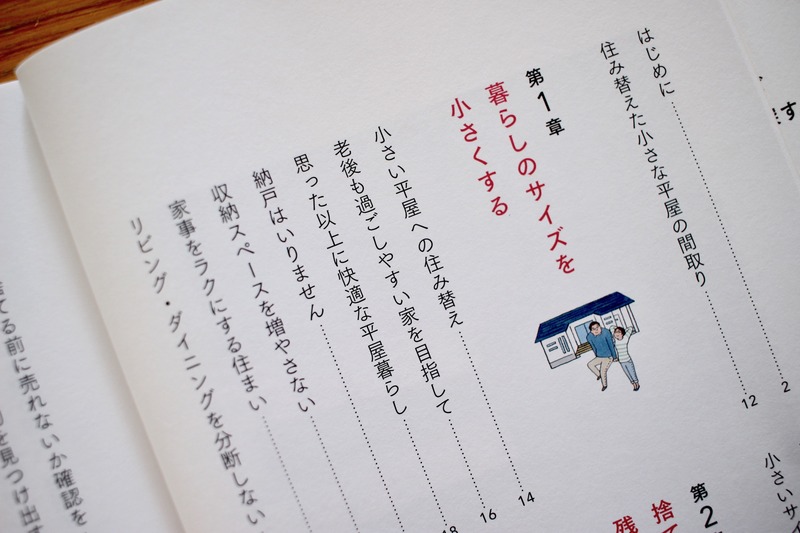 はじめに 2
住み替えた小さな平屋の間取り 12
第1章
暮らしのサイズを
小さくする
小さい平屋への住み替え 14
老後も過ごしやすい家を目指して 16
思った以上に快適な平屋暮らし 18
納戸はいりません
収納スペースを増やさない
家事をラクにする住まい
リビング・ダイニングを分断しない
小さいサ
第2
捨て
残
てる前に売れないか確認を
を見つけ出す
す